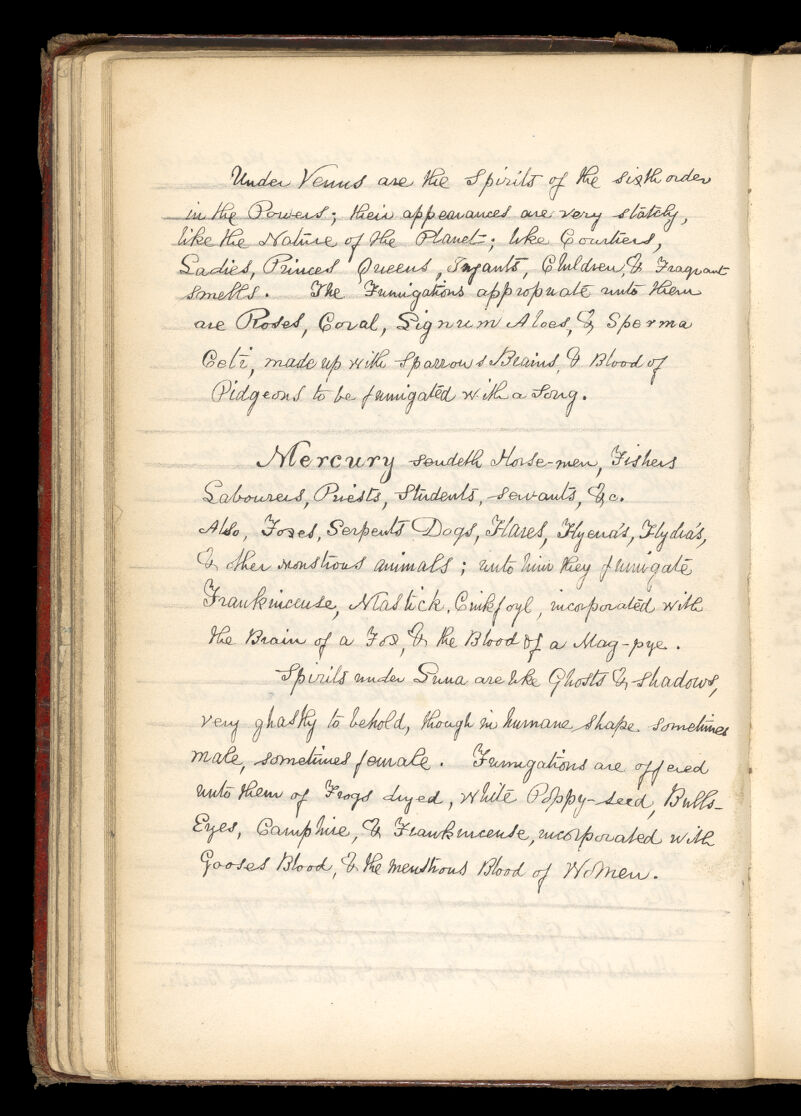 Under Venus are the Spirits of the sixth order
in the Powers; their appearances are very stately,
like the Nature of the Planet; like Courtiers,
Ladies, Princes Queens, Infants, Children, & Fragrant
smells. The Fumigations appropriate unto them
are Roses, Coral, Lignum Aloes, & Sperma
Ceti, made up with Sparrows Brains, & Blood of
Pidgeons to be fumigated with a Song.
Mercury sendeth Horse-men, Fishers
Labourers, Priests, Students, servants, &c.
Also, Foxes, Serpents Dogs, Hares, Hyena's, Hydra's,
& other monstrous animals; unto him they fumigate
Frankincense, Mastick, Cinkfoyl, incorporated with
the Brain of a Fox, & the Blood of a Mag-pye.
Spirits under Luna are like Ghosts & shadows,
very ghastly to behold, though in humane shape. sometimes
male, sometimes female. Fumigations are offered
unto them of Frogs dryed, white Poppy-seed, Bulls-
Eyes, Camphire, & Frankincense, incorporated with
Gooses Blood, & the menstrous Blood of Women.